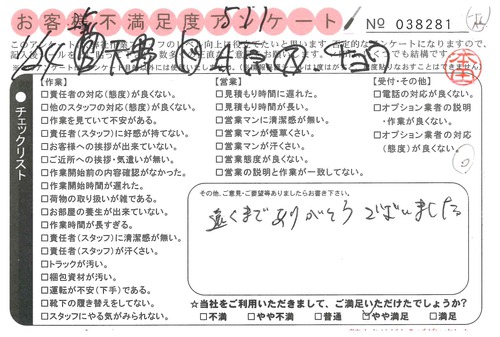 お客様不満足度アンケート
5.21
No 038281
【作業】
□責任者の対応(態度)が良くない。
□他のスタッフの対応(態度)が良くない。
□作業を見ていて不安がある。
□責任者(スタッフ)に好感が持てない。
□お客様への挨拶が出来ていない。
□ご近所への挨拶・気遣いが無い。
□作業開始前の内容確認がなかった。
□作業開始時間が遅れた。
□荷物の取り扱いが雑である。
□お部屋の養生が出来ていない。
□作業時間が長すぎる。
□責任者(スタッフ)に清潔感が無い。
□責任者(スタッフ)が汗くさい。
□トラックが汚い。
□梱包資材が汚い。
□運転が不安(下手)である。
□靴下の履き替えをしてない。
□スタッフにやる気がみられない。
【営業】
□見積もり時間に遅れた。
□見積もり時間が長い。
□営業マンに清潔感が無い。
□営業マンが煙草くさい。
□営業マンが汗くさい。
□営業態度が良くない。
□営業の説明と作業が一致してない。
【受付・その他】
□電話の対応が良くない。
□オプション業者の説明
・作業が良くない。
□オプション業者の対応
(態度)が良くない。
チェックリスト
その他、ご意見・ご要望等ありましたらお書き下さい。
遠くまでありがとうございました
☆当社をご利用いただきまして、ご満足いただけたでしょうか?
□不満 □やや不満 □普通 □やや満足 □満足